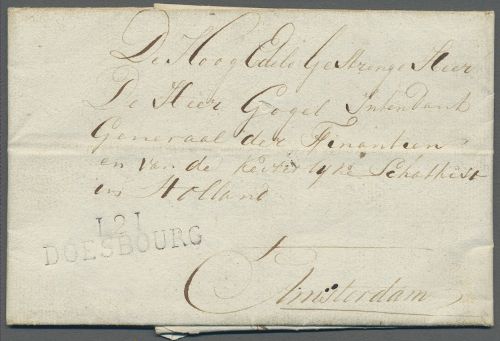 De Hoog Edele Gestrenge Heer
De Heer Gogel Intendant
Generaal der Finantien
en van de Keiserlyke Schatkist
in Holland
121
DOESBOURG
Amsterdam